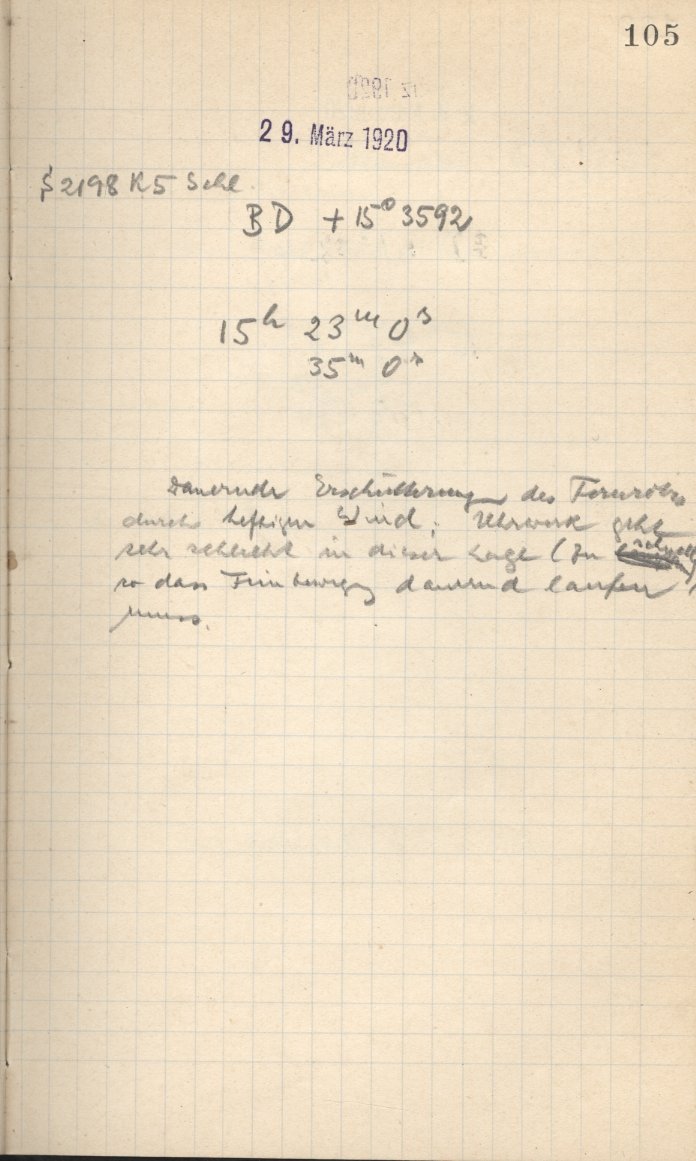 105
29. März 1920
2198 K5 Schl.
BD +15° 3592
15h 23m 0s
35m 0s
Dauernde Erschütterung des Fernrohrs
durch heftigen Wind. Uhrwerk geht
sehr schlecht in dieser Lage (zu schnell)
so dass Feinbewegung dauernd laufen
muss.